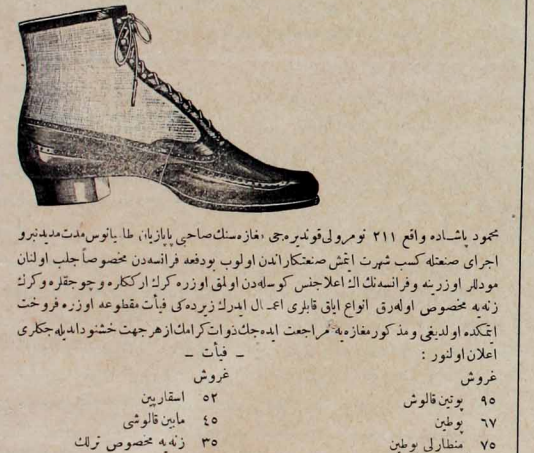 محمود پاشاده واقع ٢١١ نومرولی قوندره‌جی مغازه‌سنك صاحبی پاپازیان طاپیانوس مدت مدیدنبرو
اجرای صنعتله كسب شهرت ایتمش صنعتكاراندن اولوب بودفعه فرانسه‌دن مخصوصاً جلب اولنان
مودللر اوزرینه و فرانسه‌نك اك اعلا جنس كوسله‌دن اولمق اوزره كرك ارككلره و چوجقلره و كرك
زنه‌یه مخصوص اوله‌رق انواع ایاق قابلری اعمال ایدرك زیرده‌كی فیأت مقطوعه اوزره فروخت
ایتمكده اولدیغی و مذكور مغازه‌یه مراجعت ایده‌جك ذوات كرامك از هر جهت خشنود ایدیله‌جكلری
اعلان اولنور :
– فیأت –
غروش
٩٥ پوتین قالوش
٦٧ پوطین
٧٥ منطارلی پوطین
غروش
٥٢ اسقارپین
٤٥ مابین قالوشی
٣٥ زنه‌یه مخصوص ترلك